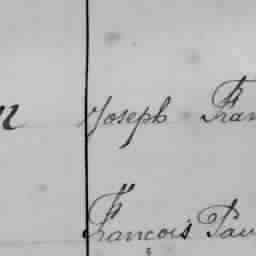 n Joseph Fran
François Pau